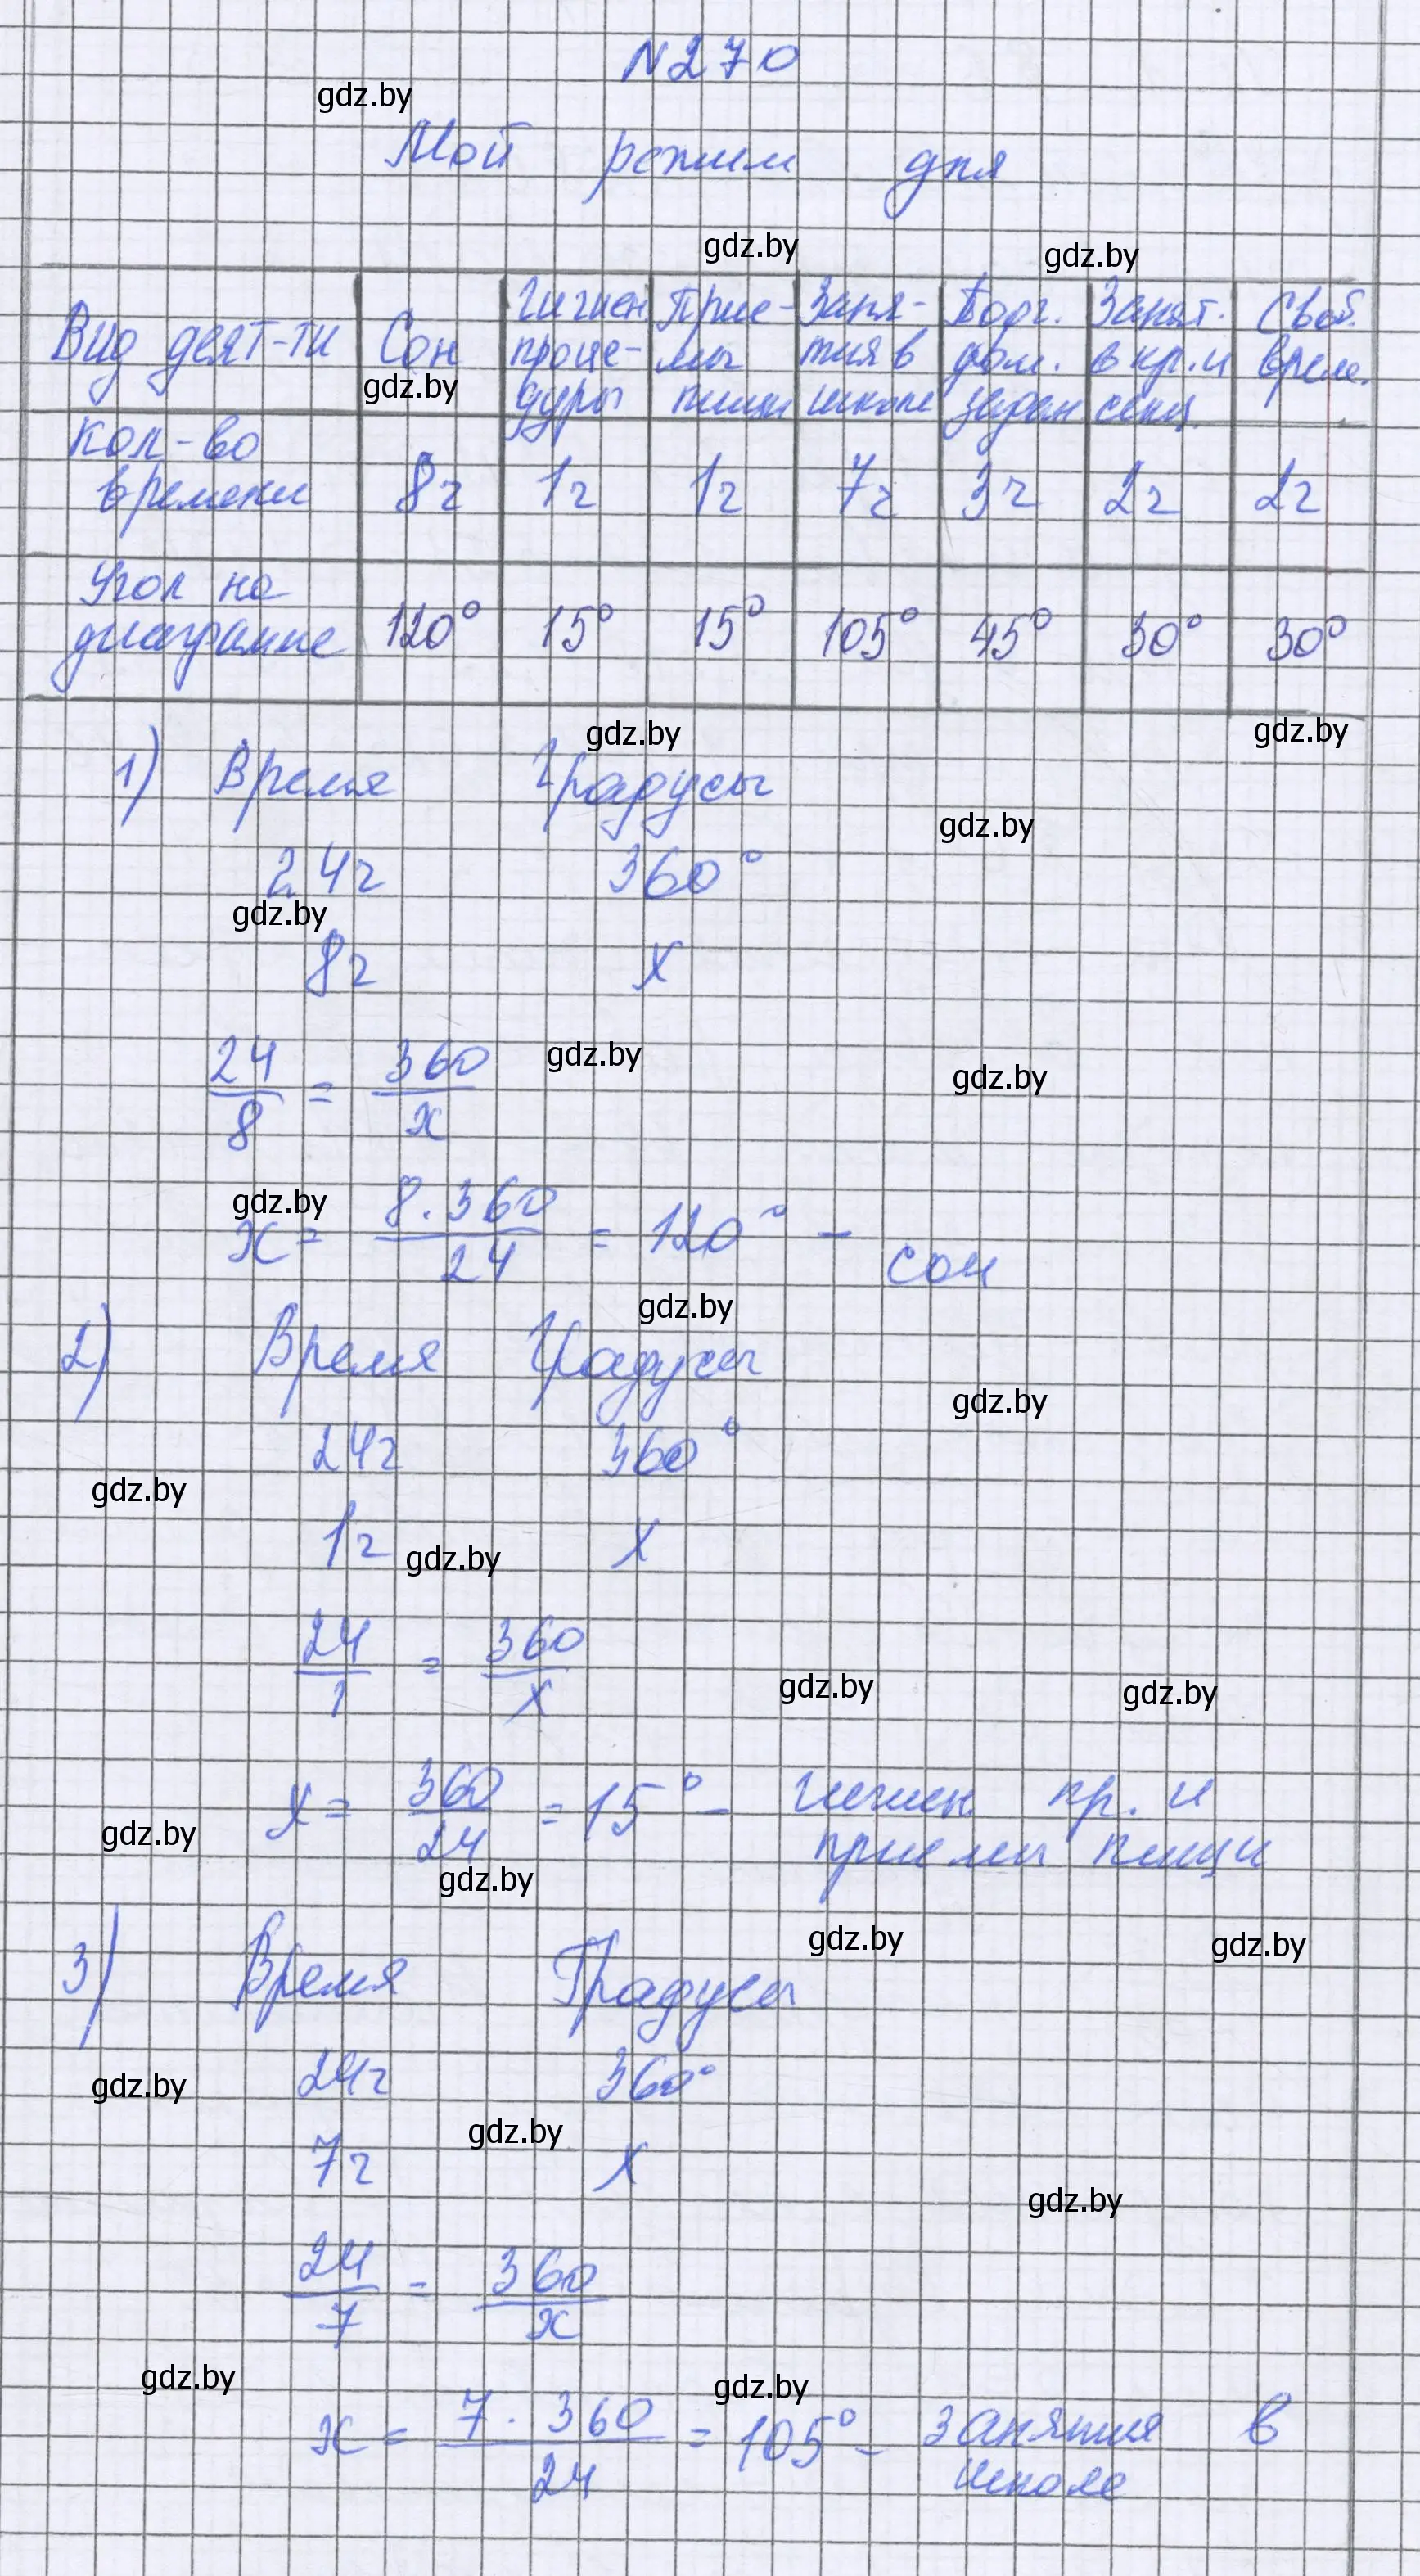 N270
gdz.by
Мой режим дня
gdz.by gdz.by
Вид деят-ти | Сон | Гигиен. проце-дуры | Прие-мы пищи | Заня-тия в школе | Подг. дом. задан | Занят. в кр. и секц. | Своб. врем.
gdz.by
Кол-во времени | 8ч | 1ч | 1ч | 7ч | 3ч | 2ч | 2ч
Угол на диаграмме | 120° | 15° | 15° | 105° | 45° | 30° | 30°
gdz.by gdz.by
1) Время Градусы
gdz.by
24ч 360°
gdz.by
8ч x
24/8 = 360/x
gdz.by gdz.by
gdz.by
x = 8·360/24 = 120° – сон
gdz.by
2) Время Градусы
gdz.by
24ч 360°
gdz.by
1ч x
gdz.by
24/1 = 360/x
gdz.by gdz.by
x = 360/24 = 15° – гигиен. пр. и
приемы пищи
gdz.by
gdz.by
gdz.by gdz.by
3) Время Градусы
24ч 360°
gdz.by
gdz.by
7ч x
gdz.by
24/7 = 360/x
gdz.by gdz.by
x = 7·360/24 = 105° – занятия в
школе